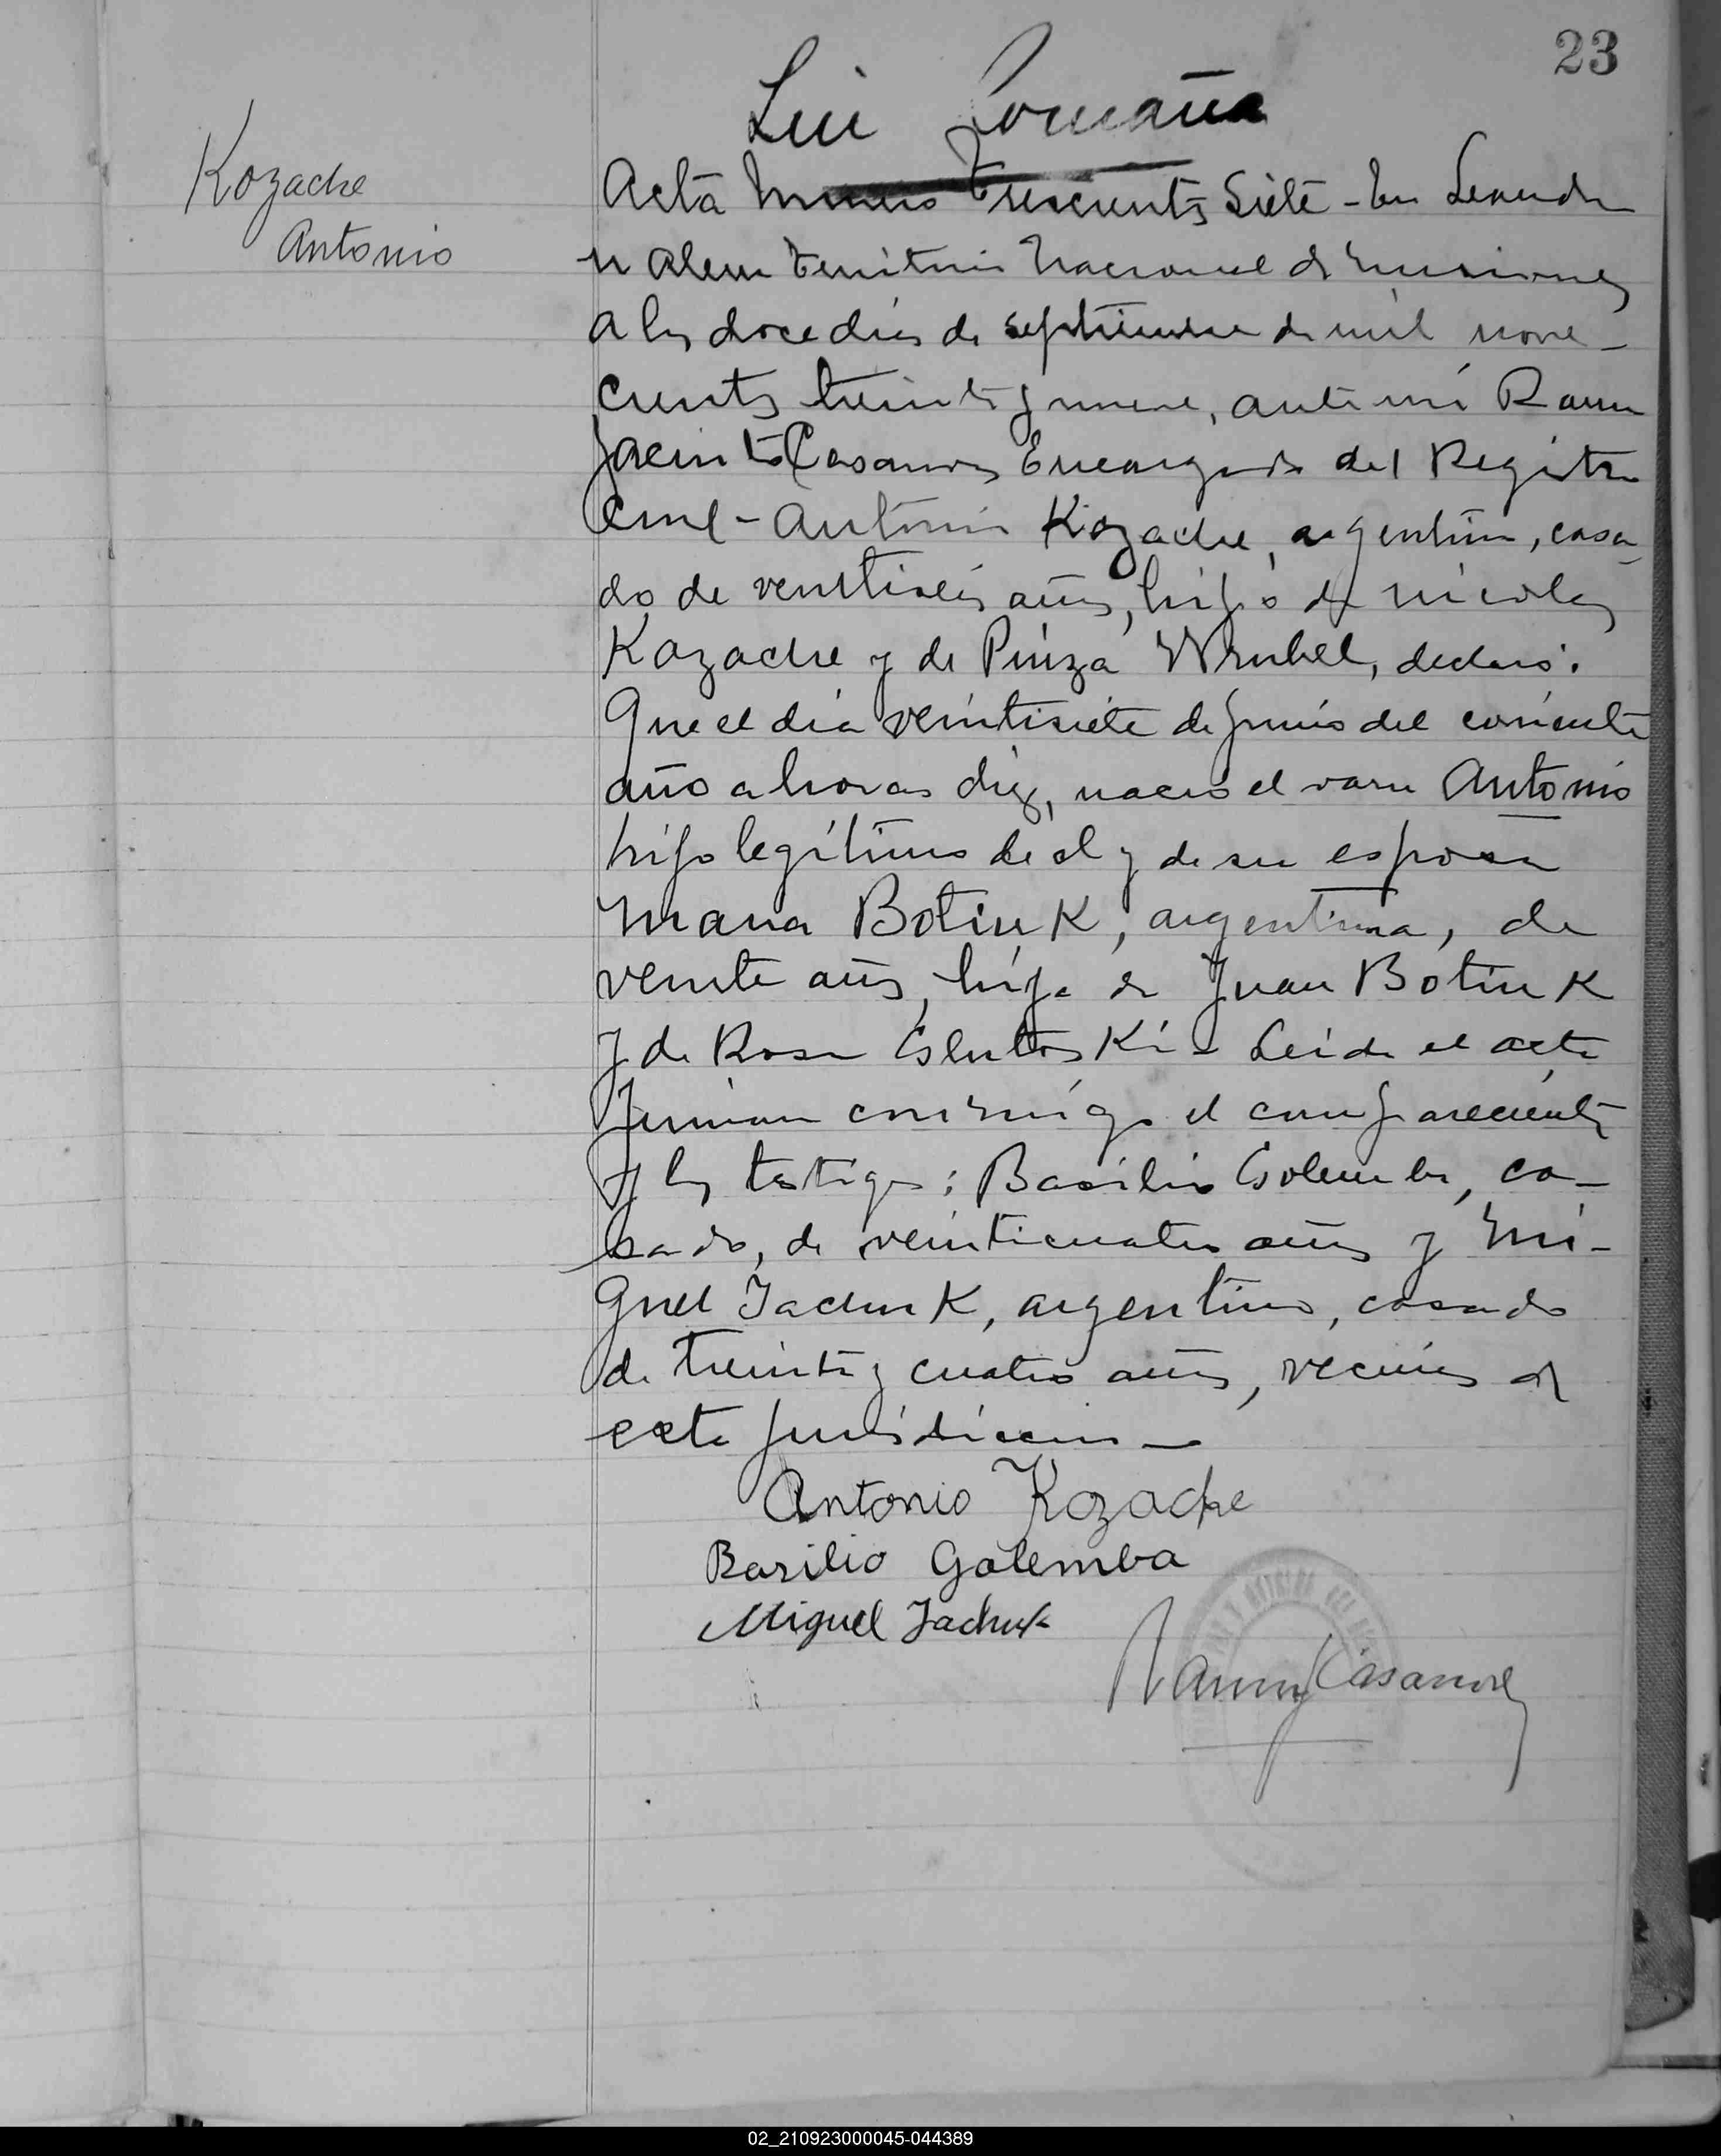 23
Luis
Kozache
Antonio
Acta Número Trescientos Siete - En Leandro
N Alem Territorio Nacional de Misiones
a los doce dias de septiembre de mil nove-
cientos treinta y nueve, ante mi Ramon
Jacinto Casanova Encargado del Registro
Civil - Antonio Kozache, argentino, casa-
do, de ventiseis años, hijo de Nicolas
Kozache y de Pinza Wrubel, declaró:
Que el dia veintisiete de Junio del corriente
año a horas diez, nació el varon Antonio
hijo legítimo de el y de su esposa
Maria Botiuk, argentina, de
veinte años, hija de Juan Botiuk
y de Rosa - Leida el acta
firman conmigo el compareciente
y los testigos: Basilio Golemba, ca-
sado, de veinticuatro años y Mi-
guel Jachuk, argentino, casado
de treinta y cuatro años, vecinos de
esta jurisdiccion -
Antonio Kozache
Basilio Golemba
Miguel Jachuk
Ramon J Casanova
02_210923000045-044389